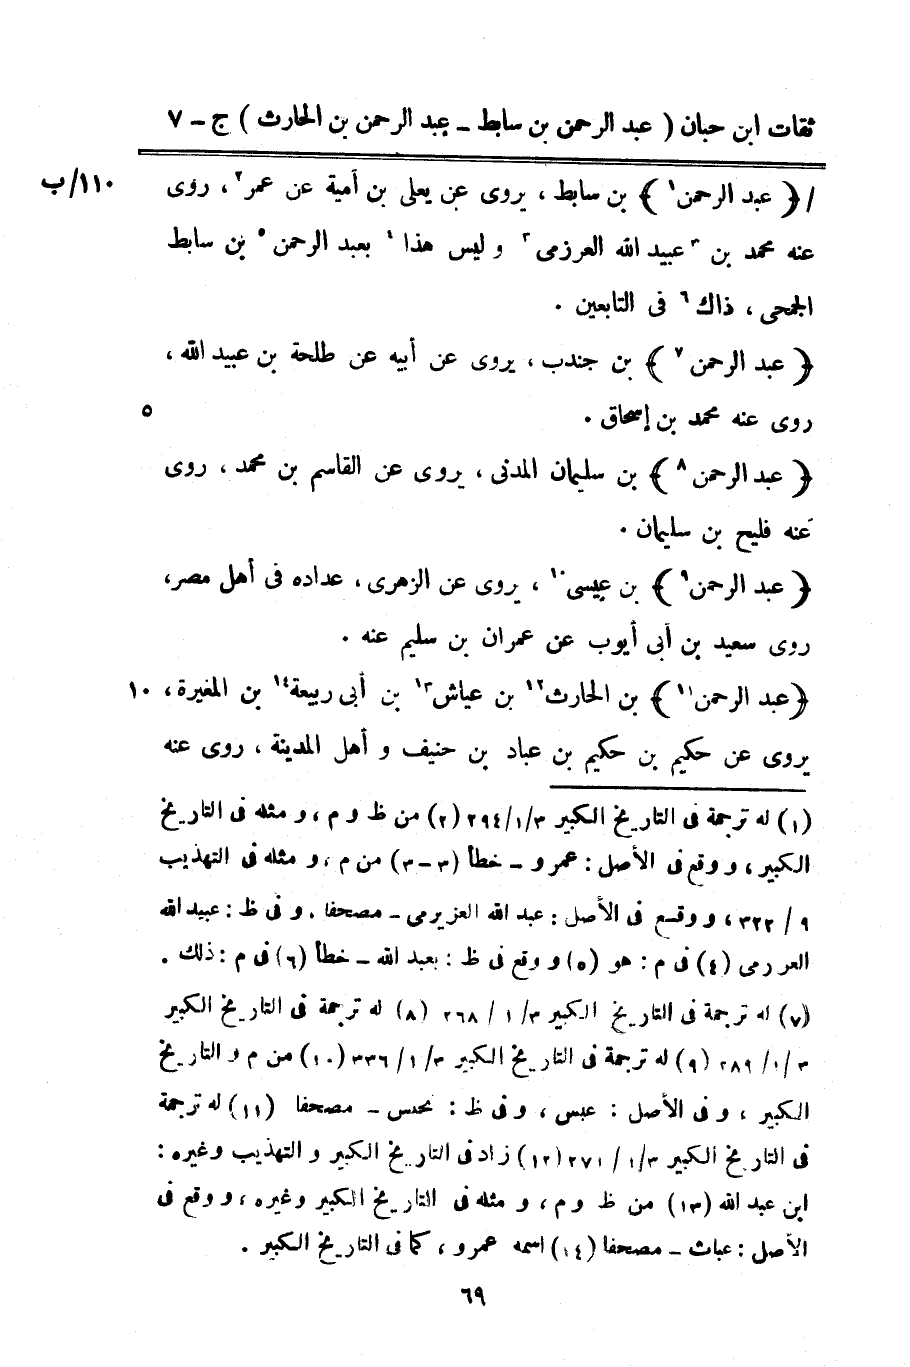 ثقات ابن حبان ( عبد الرحمن بن سابط ــ عبد الرحمن بن الحارث ) ج ــ ٧
/ ﴿ عبد الرحمن١ ﴾ بن سابط ، يروى عن يعلى بن أمية عن عمر٢ ، روى ١١٠/ب
عنه محمد بن ٣ عبيد الله العرزمى ٣ و ليس هذا ٤ بعبد الرحمن ٥ بن سابط
الجمحى ، ذاك ٦ فى التابعين .
﴿ عبد الرحمن ٧ ﴾ بن جندب ، يروى عن أبيه عن طلحة بن عبيد الله ،
روى عنه محمد بن إسحاق . ٥
﴿ عبد الرحمن ٨ ﴾ بن سليمان المدنى ، يروى عن القاسم بن محمد ، روى
عنه فليح بن سليمان .
﴿ عبد الرحمن٩ ﴾ بن عيسى١٠ ، يروى عن الزهرى ، عداده فى أهل مصر،
روى سعيد بن أبى أيوب عن عمران بن سليم عنه .
﴿عبد الرحمن١١ ﴾ بن الحارث١٢ بن عياش١٣ بن أبى ربيعة١٤ بن المغيرة، ١٠
يروى عن حكيم بن حكيم بن عباد بن حنيف و أهل المدينة ، روى عنه
(١) له ترجمة فى التاريخ الكبير ٢٩٤/١/٣ (٢) من ظ و م ، و مثله فى التاريخ
الكبير ، و وقع فى الأصل : عمرو ــ خطأ (٣ــ٣) من م ، و مثله فى التهذيب
٩ / ٣٢٢ ، و وقع فى الأصل : عبد الله العزيرمى ــ مصحفا . و فى ظ : عبيد الله
العررمى (٤) فى م : هو (٥) و وقع فى ظ : بعبد الله ــ خطأ (٦) فى م : ذلك .
(٧) له ترجمة فى التاريخ الكبير ٣/ ١ / ٢٦٨ (٨) له ترجمة فى التاريخ الكبير
٣ /١/ ٢٨٩ (٩) له ترجمة فى التاريخ الكبير ٣/ ١/ ٣٣٦ (١٠) من م و التاريخ
الكبير ، و فى الأصل : عبس ، و فى ظ : نحبس ــ مصحفا (١١) له ترجمة
فى التاريخ الكبير ٣/ ١/ ٢٧١ (١٢) زاد فى التاريخ الكبير و التهذيب وغيره :
ابن عبد الله (١٣) من ظ و م ، و مثله فى التاريخ الكبير وغيره ، و وقع فى
الأصل : عباث ــ مصحفا (١٤) اسمه عمرو ، كما فى التاريخ الكبير .
٦٩